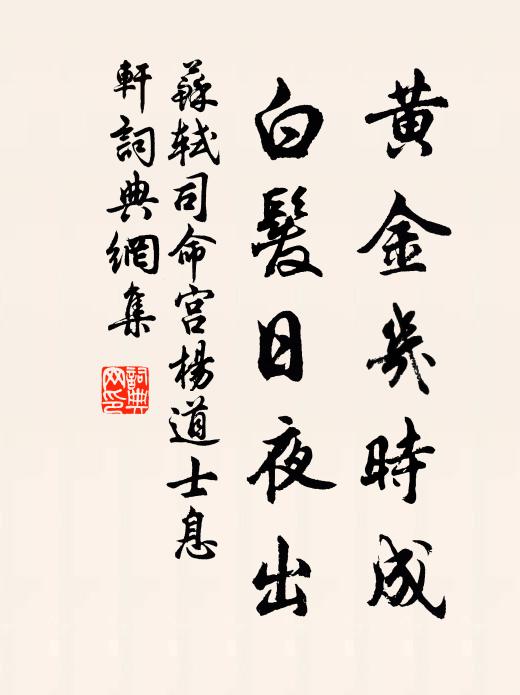 黄金幾時成
白髮日夜出
蘇軾司命宮楊道士息
軒詞典網集
詞典
网印